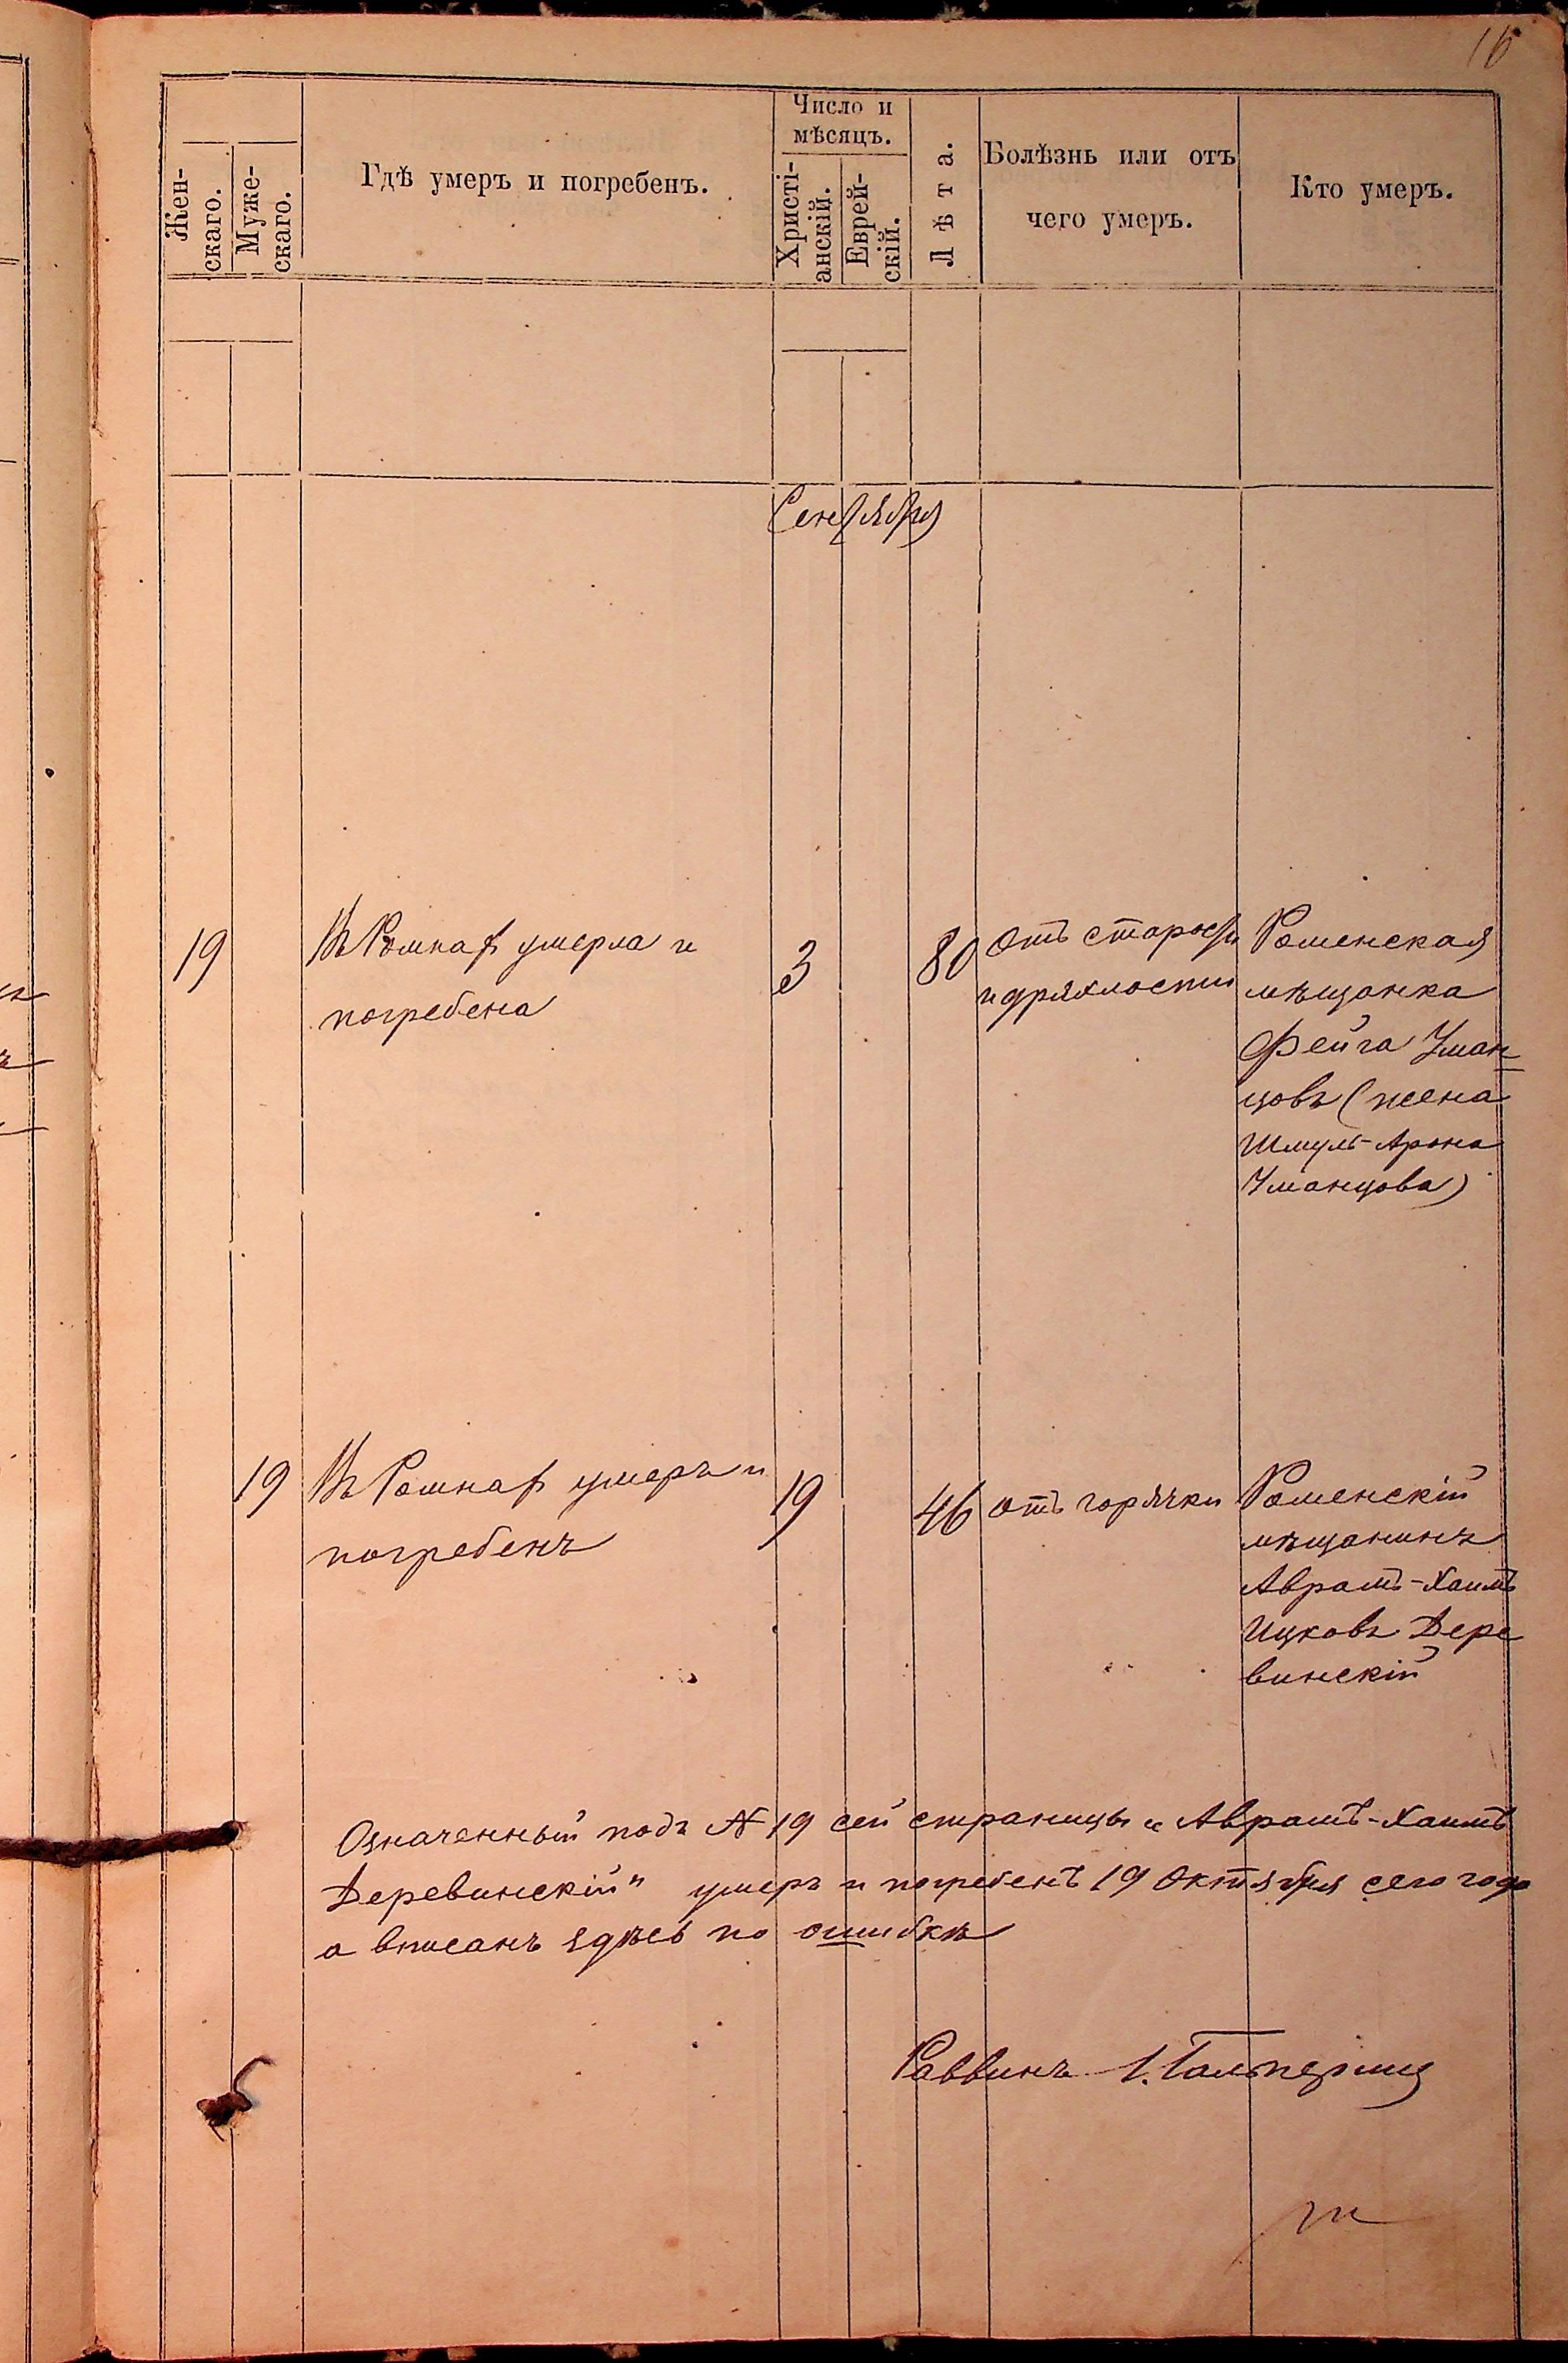 16
Число и
мѣсяцъ.
Жен-
скаго.
Муже-
скаго.
Гдѣ умеръ и погребенъ.
Христі-
анскій.
Еврей-
скій.
Лѣта.
Болѣзнь или отъ
чего умеръ.
Кто умеръ.
Сентября
19
Въ Ромнах умерла и
погребена
3
80
отъ старости
и дряхлости
Роменская
мѣщанка
Фейга Уман-
цовъ (жена
Шмуль-Арона
Уманцова)
19
Въ Ромнах умеръ и
погребенъ
19
46
отъ горячки
Роменскій
мѣщанинъ
Аврамъ-Хаимъ
Ицковъ Дере
винскій
Означенный подъ № 19 сей страницы „Аврамъ-Хаимъ
Деревинскій" умеръ и погребенъ 19 Октября сего года
а вписанъ здѣсь по ошибкѣ
Раввинъ І. Гальперинъ